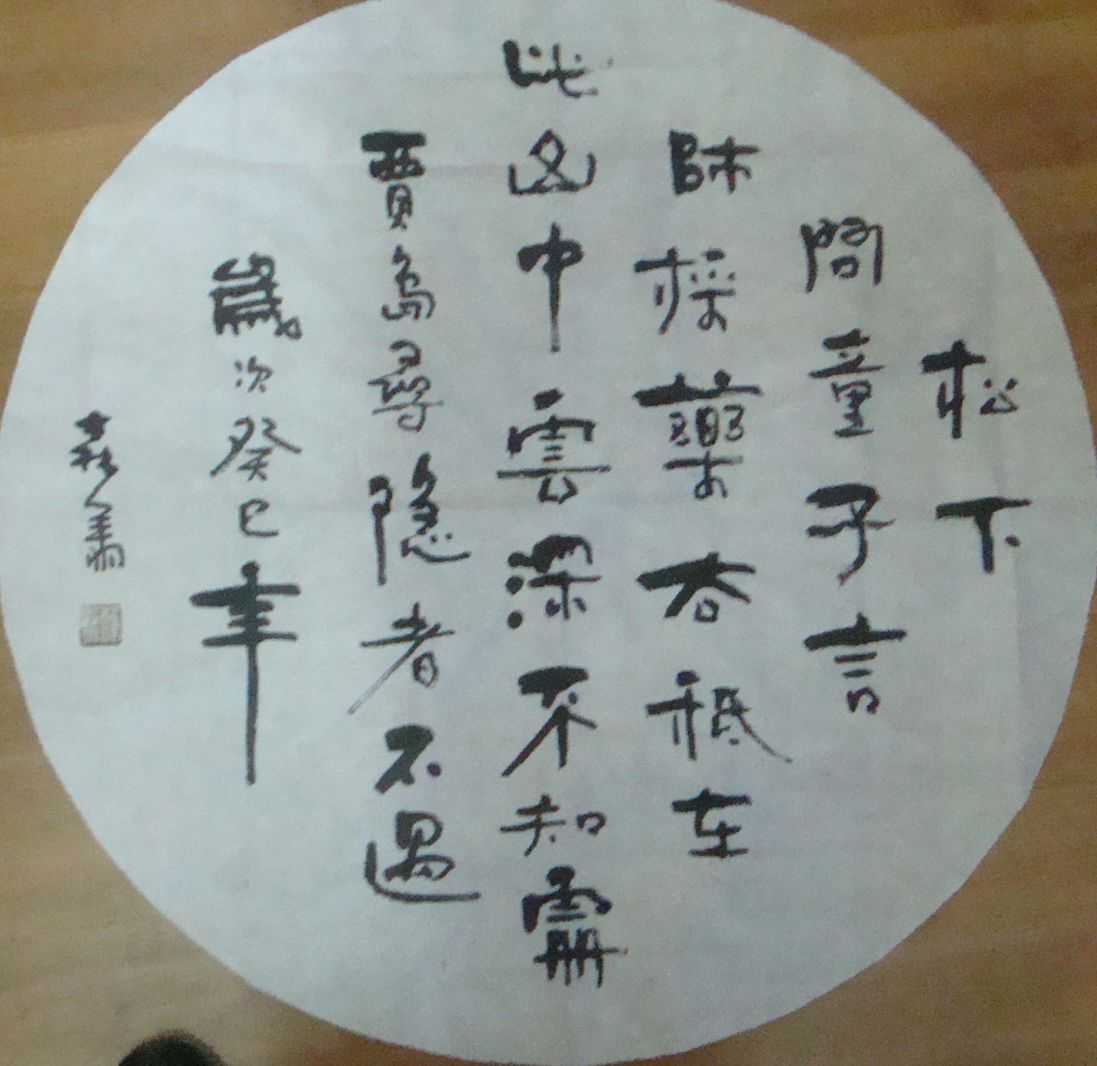 松下
問童子言
師採藥去祗在
此山中雲深不知處
賈島尋隐者不遇
歲次癸巳年